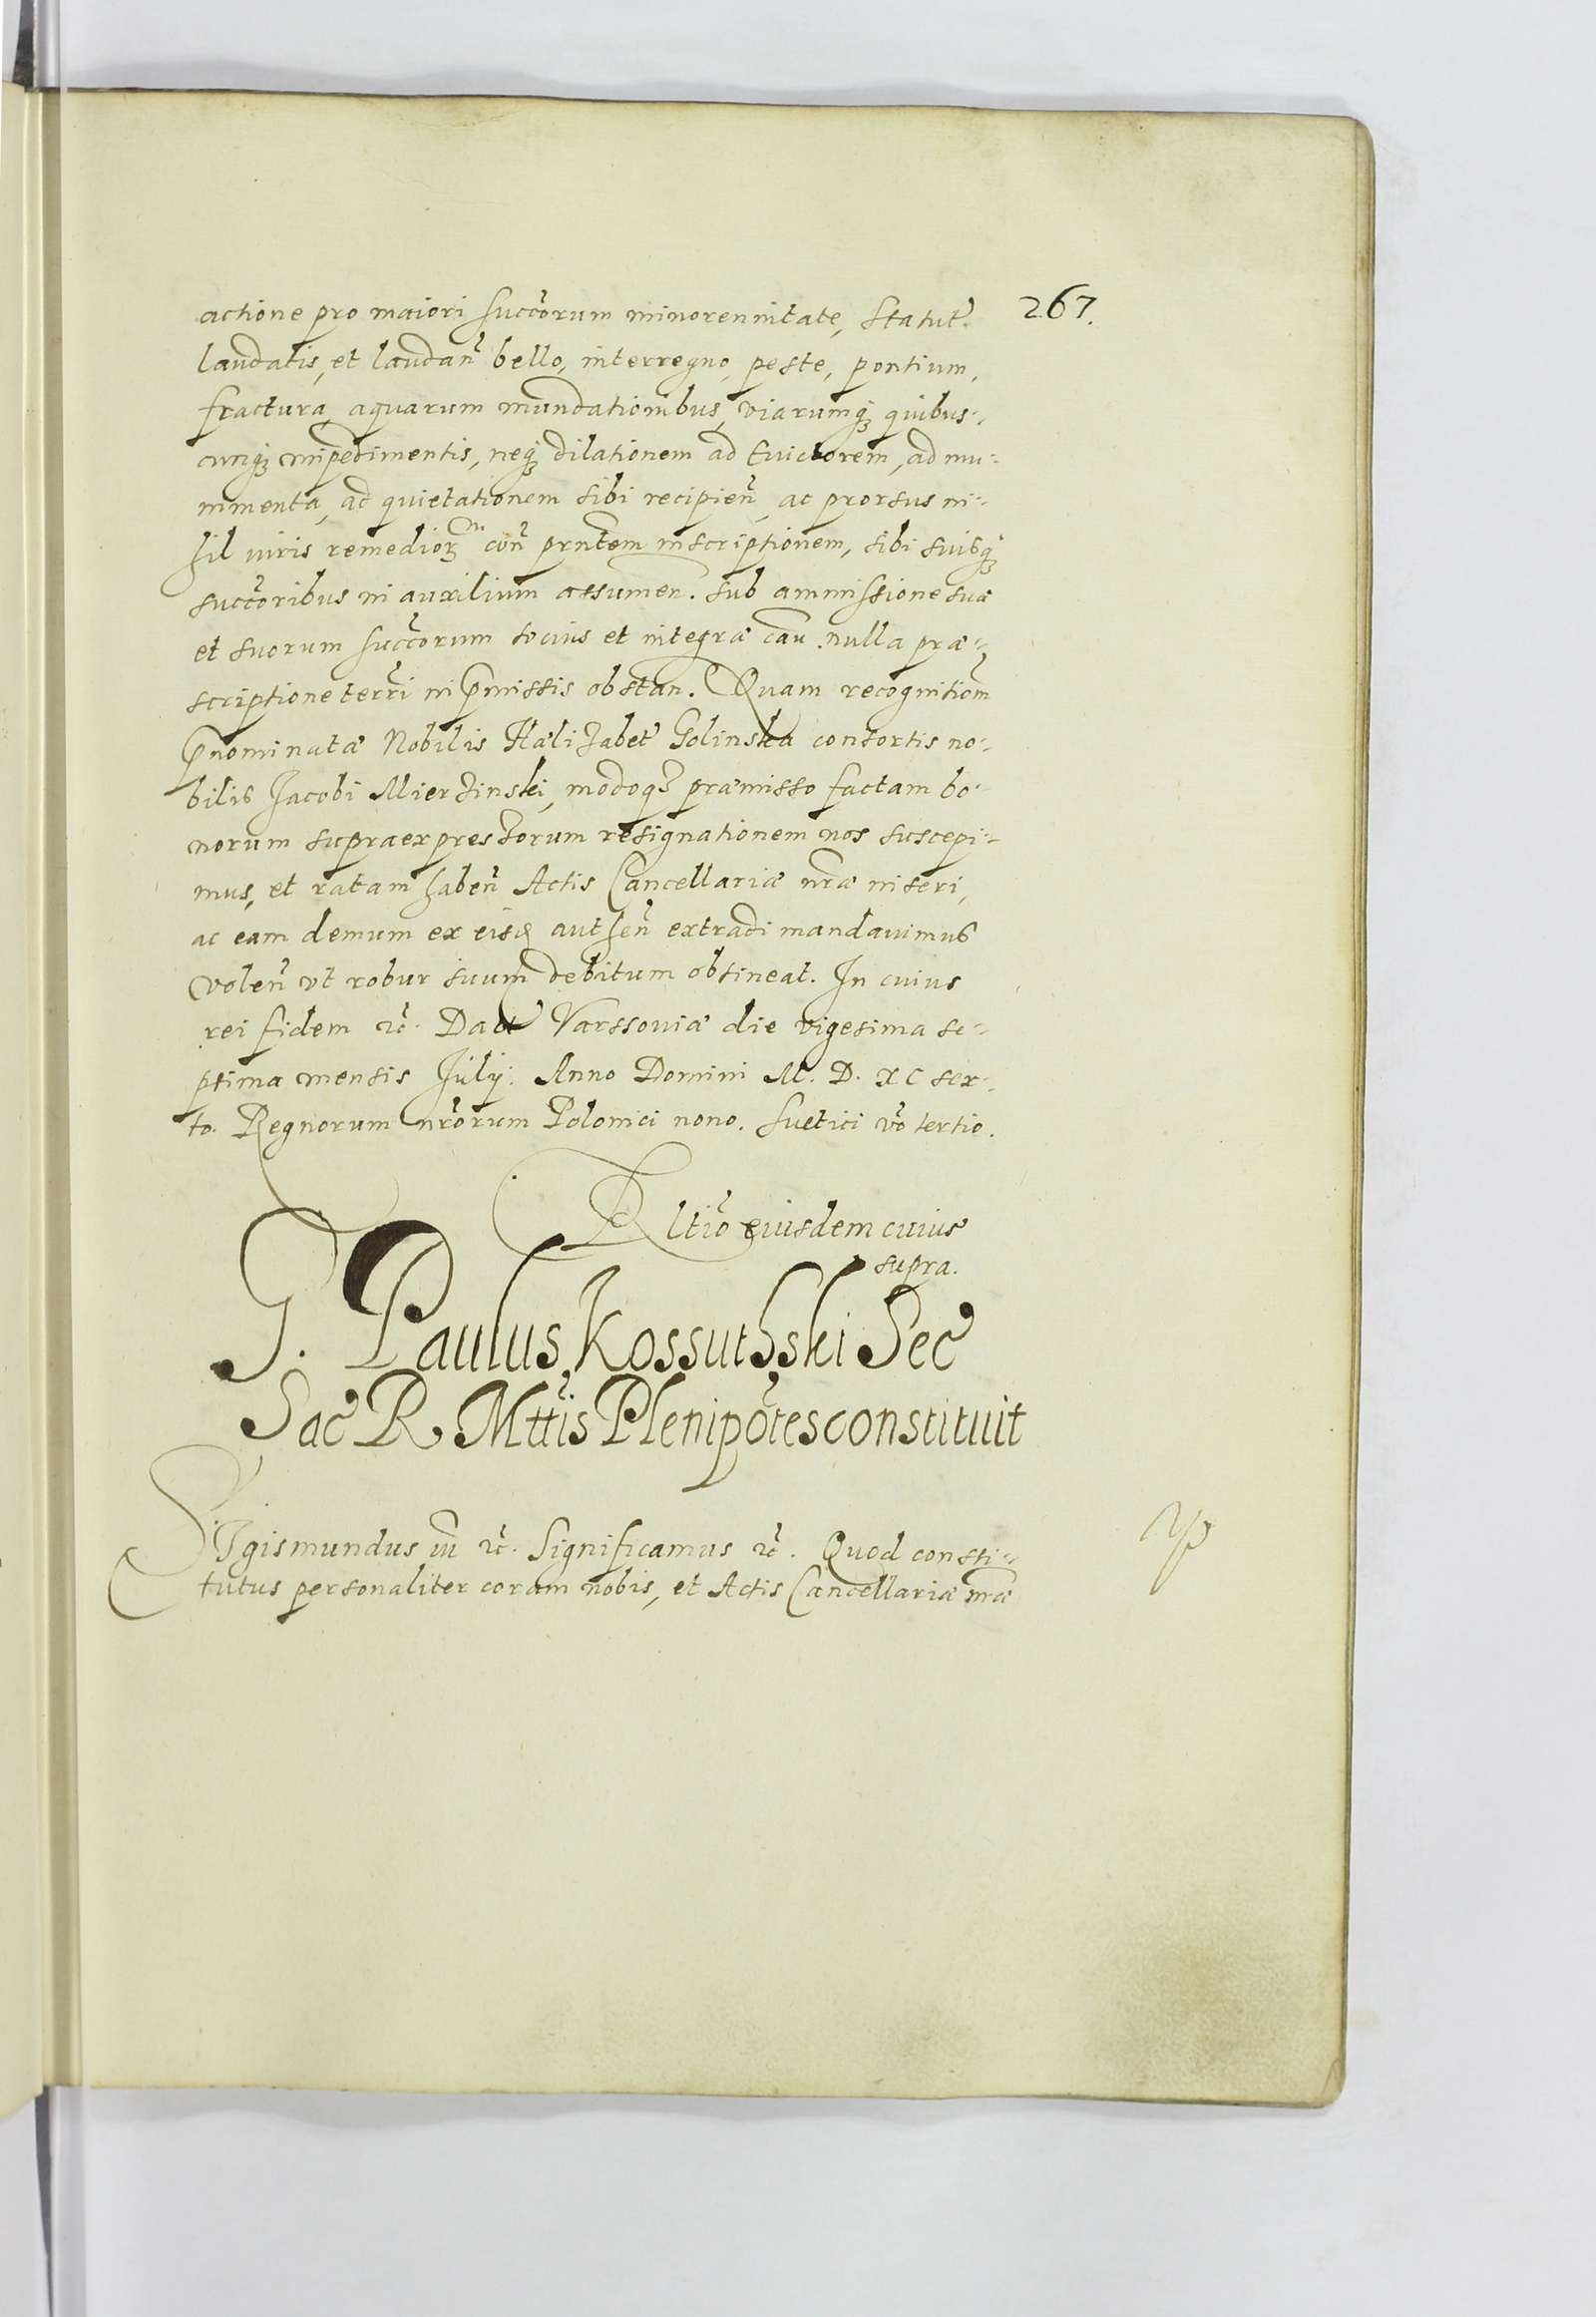 267.
actione pro maiori succorum minorennitate, statut.
laudatis, et laudan bello, interregno, peste, pontium,
fractura, aquarum inundationibus, viarumq quibus-
cunq impedimentis, neq dilationem ad Euictorem, ad mu-
nimenta, ad quietationem sibi recipien, ac prorsus ni-
hil iuris remedior con prntem inscriptionem, sibi suisq
succoribus in auxilium assumen. sub ammissione suæ
et suorum succorum tocius et integræ cau. nulla præ-
scriptione terri in pmissis obstan. Quam recognitiom
pnominatæ Nobilis Hælizabet Golinska consortis no-
bilis Jacobi Mierzinski, modoq præmisso factam bo-
norum supraexpressorum resignationem nos suscepi-
mus, et ratam haben Actis Cancellariæ nræ inseri,
ac eam demum ex eisd authen extradi mandauimus
volen vt robur suum debitum obtineat. In cuius
rei fidem &c. Dat Varssouiæ die vigesima se-
ptima mensis July. Anno Domini M. D. XC sex-
to. Regnorum nrorum Polonici nono. Suetici vo tertio.
Rltio eiusdem cuius
supra.
G. Paulus Kossuthski Sec
Sac R. Mttis Plenipotes constituit
SIgismundus iii &c. Significamus &c. Quod consti-
tutus personaliter coram nobis, et Actis Cancellariæ nræ